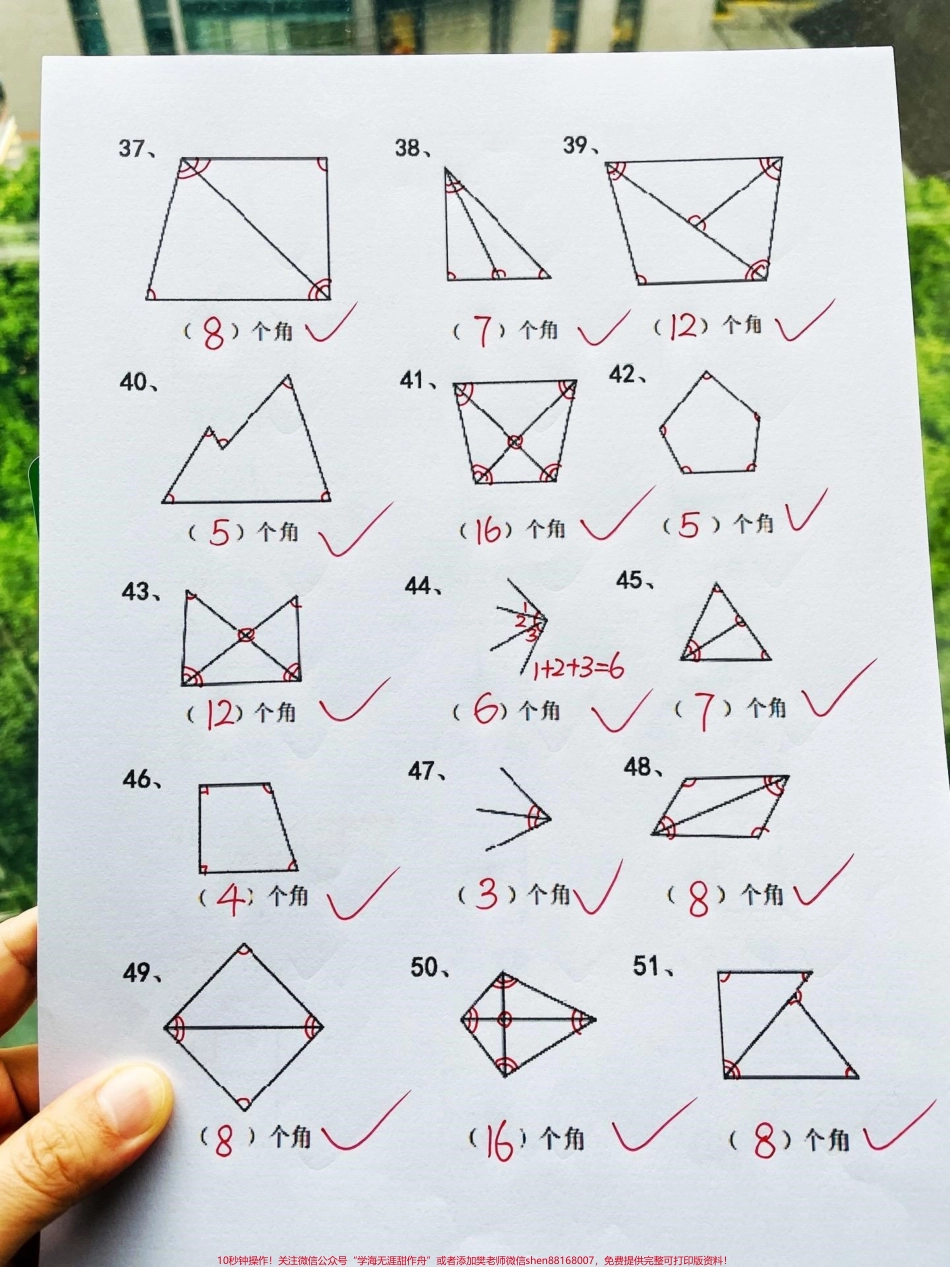 37、 38、 39、
(8)个角 (7)个角 (12)个角
40、 41、 42、
(5)个角 (16)个角 (5)个角
43、 44、 45、
1
2
3
1+2+3=6
(12)个角 (6)个角 (7)个角
46、 47、 48、
(4)个角 (3)个角 (8)个角
49、 50、 51、
(8)个角 (16)个角 (8)个角
10秒钟操作！关注微信公众号“学海无涯甜作舟”或者添加樊老师微信shen88168007，免费提供完整可打印版资料！